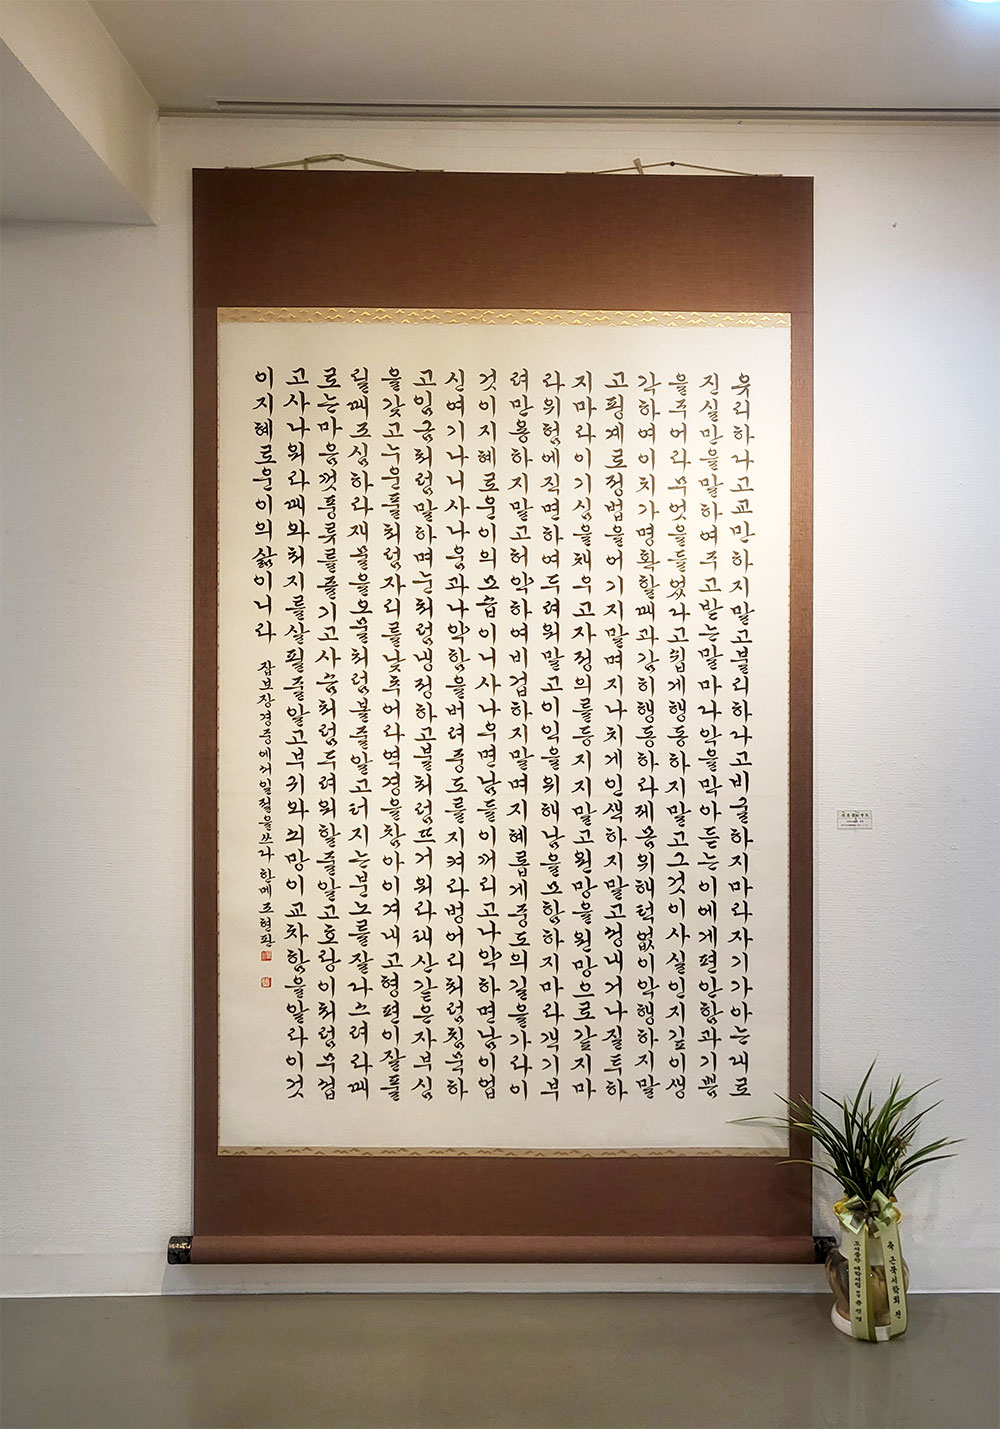 유리하다고교만하지말고불리하다고비굴하지마라자기가아는대로
진실만을말하여주고받는말마다악을막아듣는이에게편안함과기쁨
을주어라무엇을들었다고쉽게행동하지말고그것이사실인지깊이생
각하여이치가명확할때과감히행동하라제몸위해턱없이악행하지말
고핑계로정법을어기지말며지나치게인색하지말고껑내거나질투하
지마라이기심을채우고자정의를등지지말고원망을원망으로갚지마
라위험에직면하여두려워말고이익을위해남을모함하지마라객기부
려만용하지말고허약하여비겁하지말며지혜롭게중도의길을가라이
것이지혜로운이의모습이니사나우면남들이꺼리고나약하면남이업
신여기나니사나움과나약함을버려중도를지켜라벙어리처럼침묵하
고임금처럼말하며눈처럼냉정하고불처럼뜨거워라태산같은자부심
을갖고누운풀처럼자리를낮추어라역경을참아이겨내고형편이잘풀
릴때조심하라재물을오물처럼볼줄알고터지는분노를잘다스려라때
로는마음껏풍류를즐기고사슴처럼두려워할줄알고호랑이처럼무껍
고사나워라때와처지를살필줄알고부귀와쇠망이교차함을알라이것
이지혜로운이의삶이니라
잡보장경중에서일절을쓰다 한메 조현판
축 근묵서학회 전